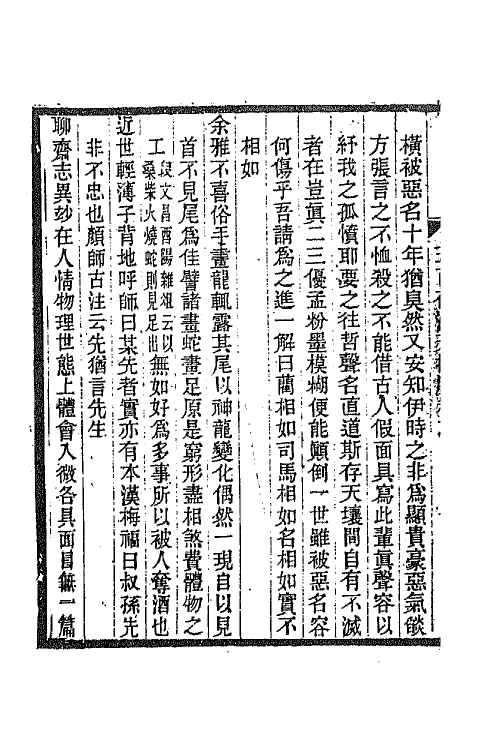 橫被惡名十年猶臭然又安知伊時之非為顯貴豪惡氣燄
方張言之不恤殺之不能借古人假面具寫此輩眞聲容以
紓我之孤憤耶要之往哲聲名直道斯存天壤間自有不滅
者在豈眞二三優孟粉墨模糊便能顚倒一世雖被惡名容
何傷乎吾請為之進一解曰藺相如司馬相如名相如實不
相如
余雅不喜俗手畫龍輒露其尾以神龍變化偶然一現自以見
首不見尾為佳譬諸畫蛇畫足原是窮形盡相煞費體物之
工段文昌酉陽雜俎云以桑柴火燒蛇則見足出無如好為多事所以被人奪酒也
近世輕薄子背地呼師曰某先者實亦有本漢梅福曰叔孫先
非不忠也顏師古注云先猶言先生
聊齋志異妙在人情物理世態上體會入微各具面目無一篇